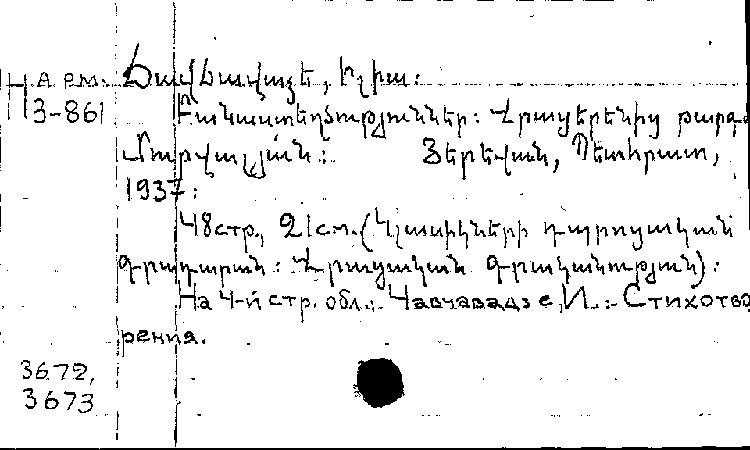 Н арм. Ճավճավաձե, Իլիա:
3-861 Բանաստեղծություններ: Վրացերենից թարգմ.
Մարգարյան: Յերեվան, Պետհրատ,
1937:
48стр., 21см. (Կլասիկների դպրոցական
գրադարան: Վրացական գրականություն):
На 4-й стр. обл.: Чавчавадзе, И.: Стихотво
рения.
3672,
3673